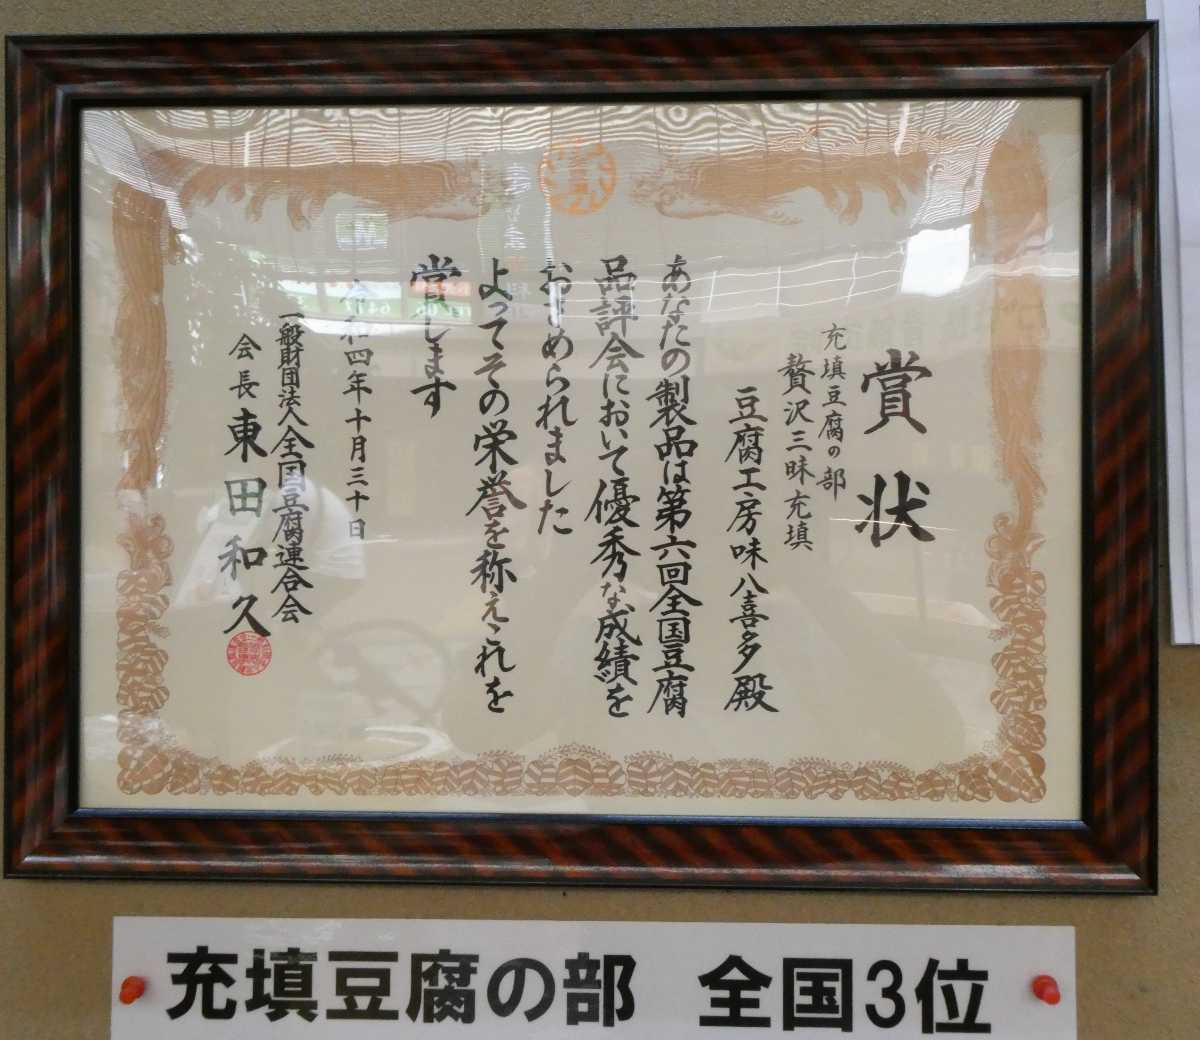 賞状
充填豆腐の部
贅沢三昧充填
豆腐工房味八喜多殿
あなたの製品は第六回全国豆腐
品評会において優秀な成績を
おさめられました
よってその栄誉を称えこれを
賞します
令和四年十月三十日
一般財団法人全国豆腐連合会
会長 東田和久
充填豆腐の部 全国3位